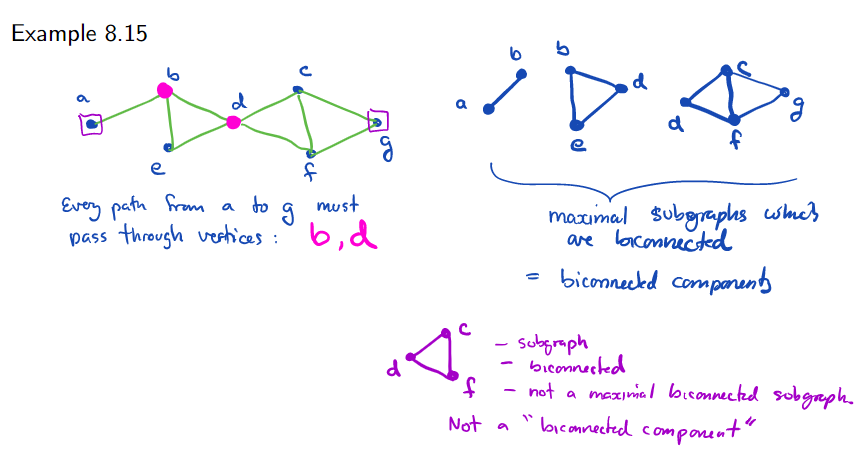 Example 8.15
a
b
d
c
e
f
g
Every path from a to g must
pass through vertices : b, d
a
b
b
d
e
c
d
f
g
maximal subgraphs which
are biconnected
= biconnected components
c
d
f
- subgraph
- biconnected
- not a maximal biconnected subgraph.
Not a "biconnected component"